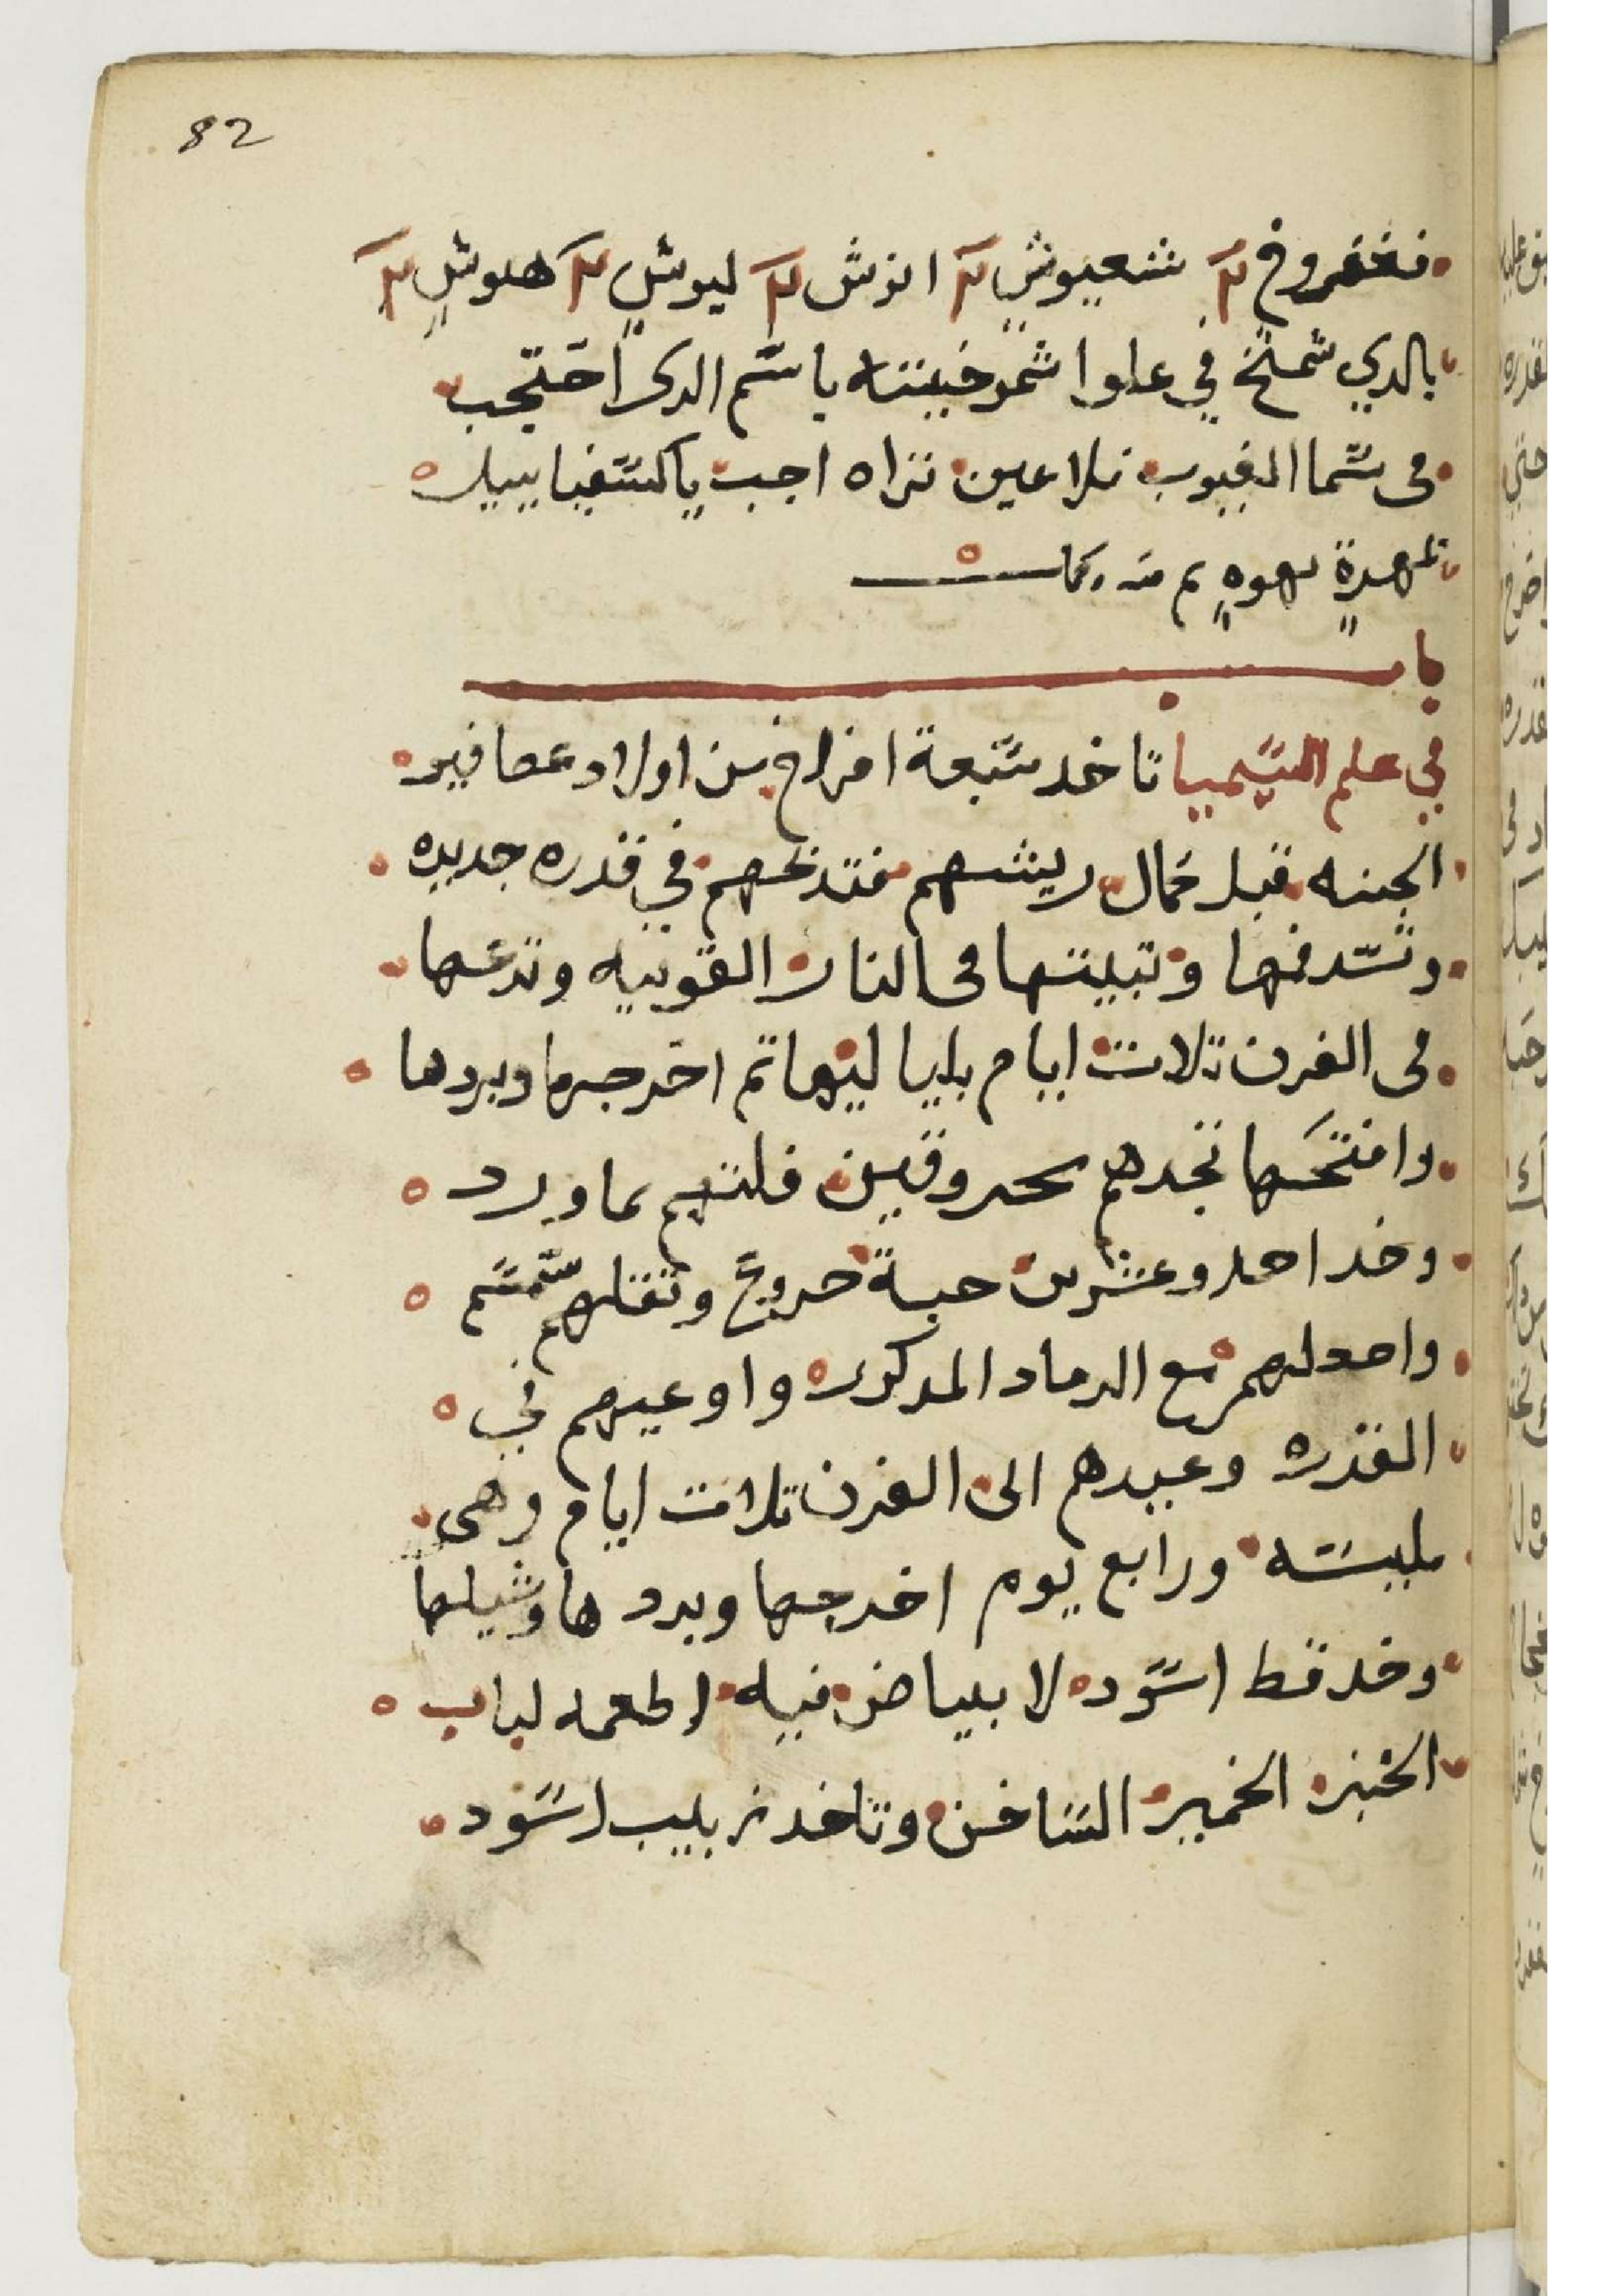 82
فغفروخ ٢ شعيوش ٢ انوش ٢ ليوش ٢ هلوش ٢
بالدي شمخ في علوا شموخيته باسم الدي احتجب
في سما الغيوب فلا عين تراه اجب يا كسفيابيل
بهوه
باب
في علم السيميا تاخد سبعة افراخ من اولاد عصافير
الجنه قبل كمال ريشهم فتدبحهم في قدره جديده
وتسد فمها وتبيتها في النار القويه وتدعها
في الفرن تلات ايام بلياليها تم اخرجها وبردها
وافتحها تجدهم محروقين فلتهم بماورد
وخد احد وعشرين حبة خروع وتقلهم سمسم
واصحلهم مع الرماد المدكور واوعيهم في
القدره وعيدهم الى الفرن تلات ايام وهي
مليسه ورابع يوم اخرجها وبردها وشيلها
وخد قط اسود لا بياض فيه اطعمه لباب
الخبز الخمير الساخن وتاخد زبيب اسود